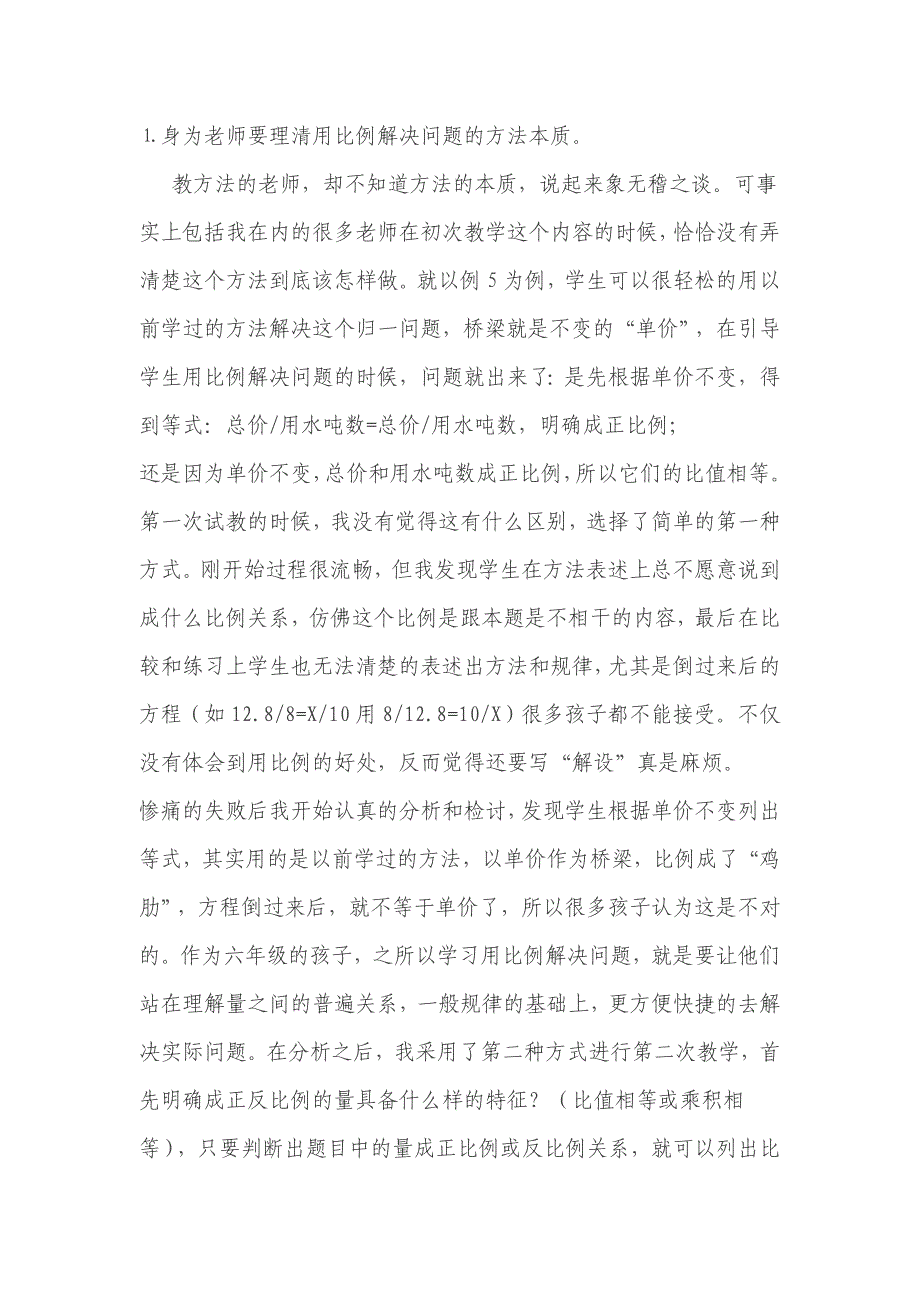 1.身为老师要理清用比例解决问题的方法本质。
教方法的老师，却不知道方法的本质，说起来象无稽之谈。可事
实上包括我在内的很多老师在初次教学这个内容的时候，恰恰没有弄
清楚这个方法到底该怎样做。就以例 5 为例，学生可以很轻松的用以
前学过的方法解决这个归一问题，桥梁就是不变的“单价”，在引导
学生用比例解决问题的时候，问题就出来了：是先根据单价不变，得
到等式：总价/用水吨数=总价/用水吨数，明确成正比例；
还是因为单价不变，总价和用水吨数成正比例，所以它们的比值相等。
第一次试教的时候，我没有觉得这有什么区别，选择了简单的第一种
方式。刚开始过程很流畅，但我发现学生在方法表述上总不愿意说到
成什么比例关系，仿佛这个比例是跟本题是不相干的内容，最后在比
较和练习上学生也无法清楚的表述出方法和规律，尤其是倒过来后的
方程（如 12.8/8=X/10 用 8/12.8=10/X）很多孩子都不能接受。不仅
没有体会到用比例的好处，反而觉得还要写“解设”真是麻烦。
惨痛的失败后我开始认真的分析和检讨，发现学生根据单价不变列出
等式，其实用的是以前学过的方法，以单价作为桥梁，比例成了“鸡
肋”，方程倒过来后，就不等于单价了，所以很多孩子认为这是不对
的。作为六年级的孩子，之所以学习用比例解决问题，就是要让他们
站在理解量之间的普遍关系，一般规律的基础上，更方便快捷的去解
决实际问题。在分析之后，我采用了第二种方式进行第二次教学，首
先明确成正反比例的量具备什么样的特征？（比值相等或乘积相
等），只要判断出题目中的量成正比例或反比例关系，就可以列出比